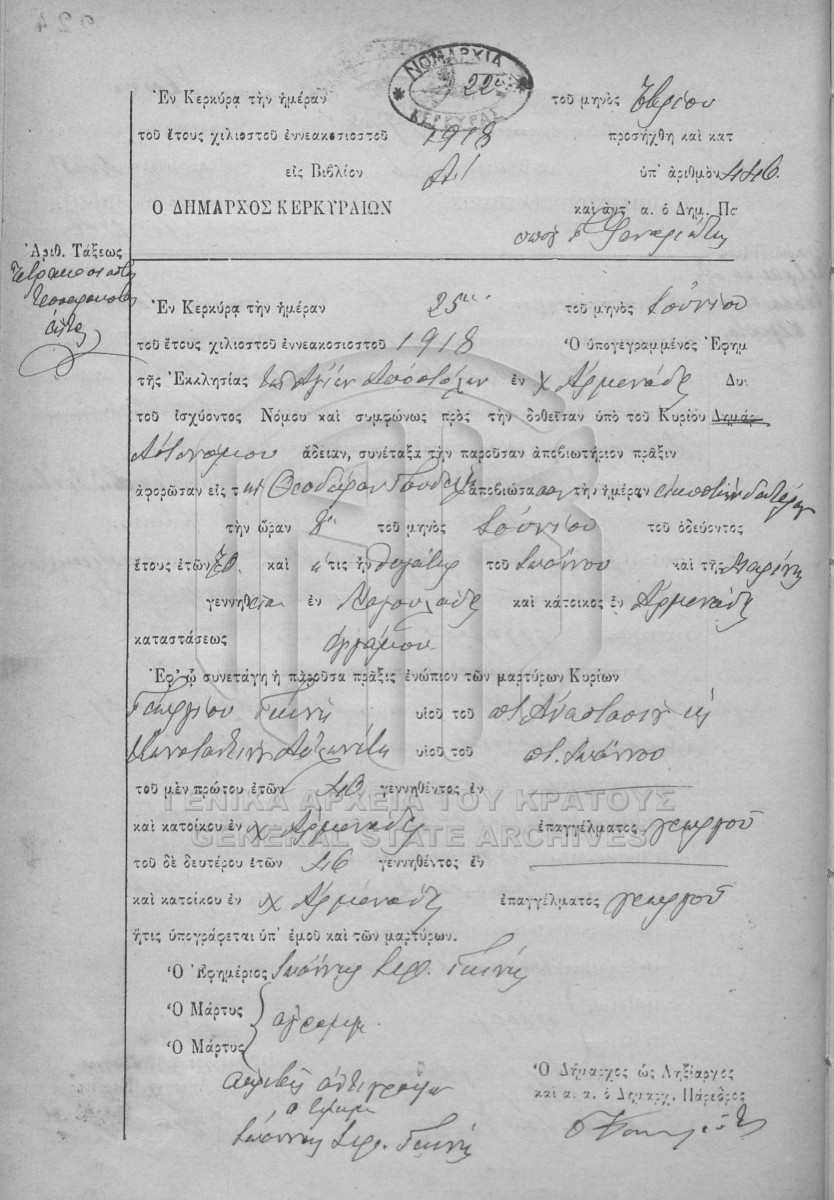 ΝΟΜΑΡΧΙΑ
ΚΕΡΚΥΡΑΣ
Ἐν Κερκύρᾳ τὴν ἡμέραν 22 τοῦ μηνὸς
τοῦ ἔτους χιλιοστοῦ ἐννεακοσιοστοῦ 1918 προσήχθη καὶ κατ
εἰς Βιβλίον ὑπ' ἀριθμὸν 446.
Ο ΔΗΜΑΡΧΟΣ ΚΕΡΚΥΡΑΙΩΝ καὶ ἀντ' α. ὁ Δημ. Πα
Ἀριθ. Τάξεως
Τετρακοσιοστὴ
τεσσαρακοστὴ
ἕκτη
Ἐν Κερκύρᾳ τὴν ἡμέραν 25 τοῦ μηνὸς Ἰουνίου
τοῦ ἔτους χιλιοστοῦ ἐννεακοσιοστοῦ 1918 Ὁ ὑπογεγραμμένος Ἐφημ
τῆς Ἐκκλησίας τῶν Ἁγίων Ἀποστόλων ἐν χ Ἀρμενάδες Δυ
τοῦ ἰσχύοντος Νόμου καὶ συμφώνως πρὸς τὴν δοθεῖσαν ὑπὸ τοῦ Κυρίου Δημάρ
Ἀστυνόμου ἄδειαν, συνέταξα τὴν παροῦσαν ἀποβιωτήριον πρᾶξιν
ἀφορῶσαν εἰς τὴν Θεοδώραν ἀποβιώσασαν τὴν ἡμέραν εἰκοστὴν
τὴν ὥραν τοῦ μηνὸς Ἰουνίου τοῦ ὁδεύοντος
ἔτους ἐτῶν καὶ ἥτις ἦν θυγάτηρ τοῦ Ἰωάννου καὶ τῆς Μαρίνης
γεννηθεῖσα ἐν Μαγουλάδες καὶ κάτοικος ἐν Ἀρμενάδες
καταστάσεως ἐγγάμου
Ἐφ' ᾧ συνετάγη ἡ παροῦσα πρᾶξις ἐνώπιον τῶν μαρτύρων Κυρίων
Γεωργίου Γκίνη υἱοῦ τοῦ ποτ. Ἀναστασίου καὶ
Κωνσταντίνου υἱοῦ τοῦ ποτ. Ἰωάννου
τοῦ μὲν πρώτου ἐτῶν 40 γεννηθέντος ἐν
καὶ κατοίκου ἐν χ Ἀρμενάδες ἐπαγγέλματος γεωργοῦ
τοῦ δὲ δευτέρου ἐτῶν 46 γεννηθέντος ἐν
καὶ κατοίκου ἐν χ Ἀρμενάδες ἐπαγγέλματος γεωργοῦ
ἥτις ὑπογράφεται ὑπ' ἐμοῦ καὶ τῶν μαρτύρων.
Ὁ Ἐφημέριος Ἰωάννης Ιερ. Γκίνης
Ὁ Μάρτυς
ἀγράμμ.
Ὁ Μάρτυς
Ἀκριβὲς ἀντίγραφον
Ὁ Δήμαρχος ὡς Ληξίαρχος
καὶ α. α. ὁ Δημαρχ. Πάρεδρος
Ἰωάννης Ιερ. Γκίνης
ΓΕΝΙΚΑ ΑΡΧΕΙΑ ΤΟΥ ΚΡΑΤΟΥΣ
GENERAL STATE ARCHIVES